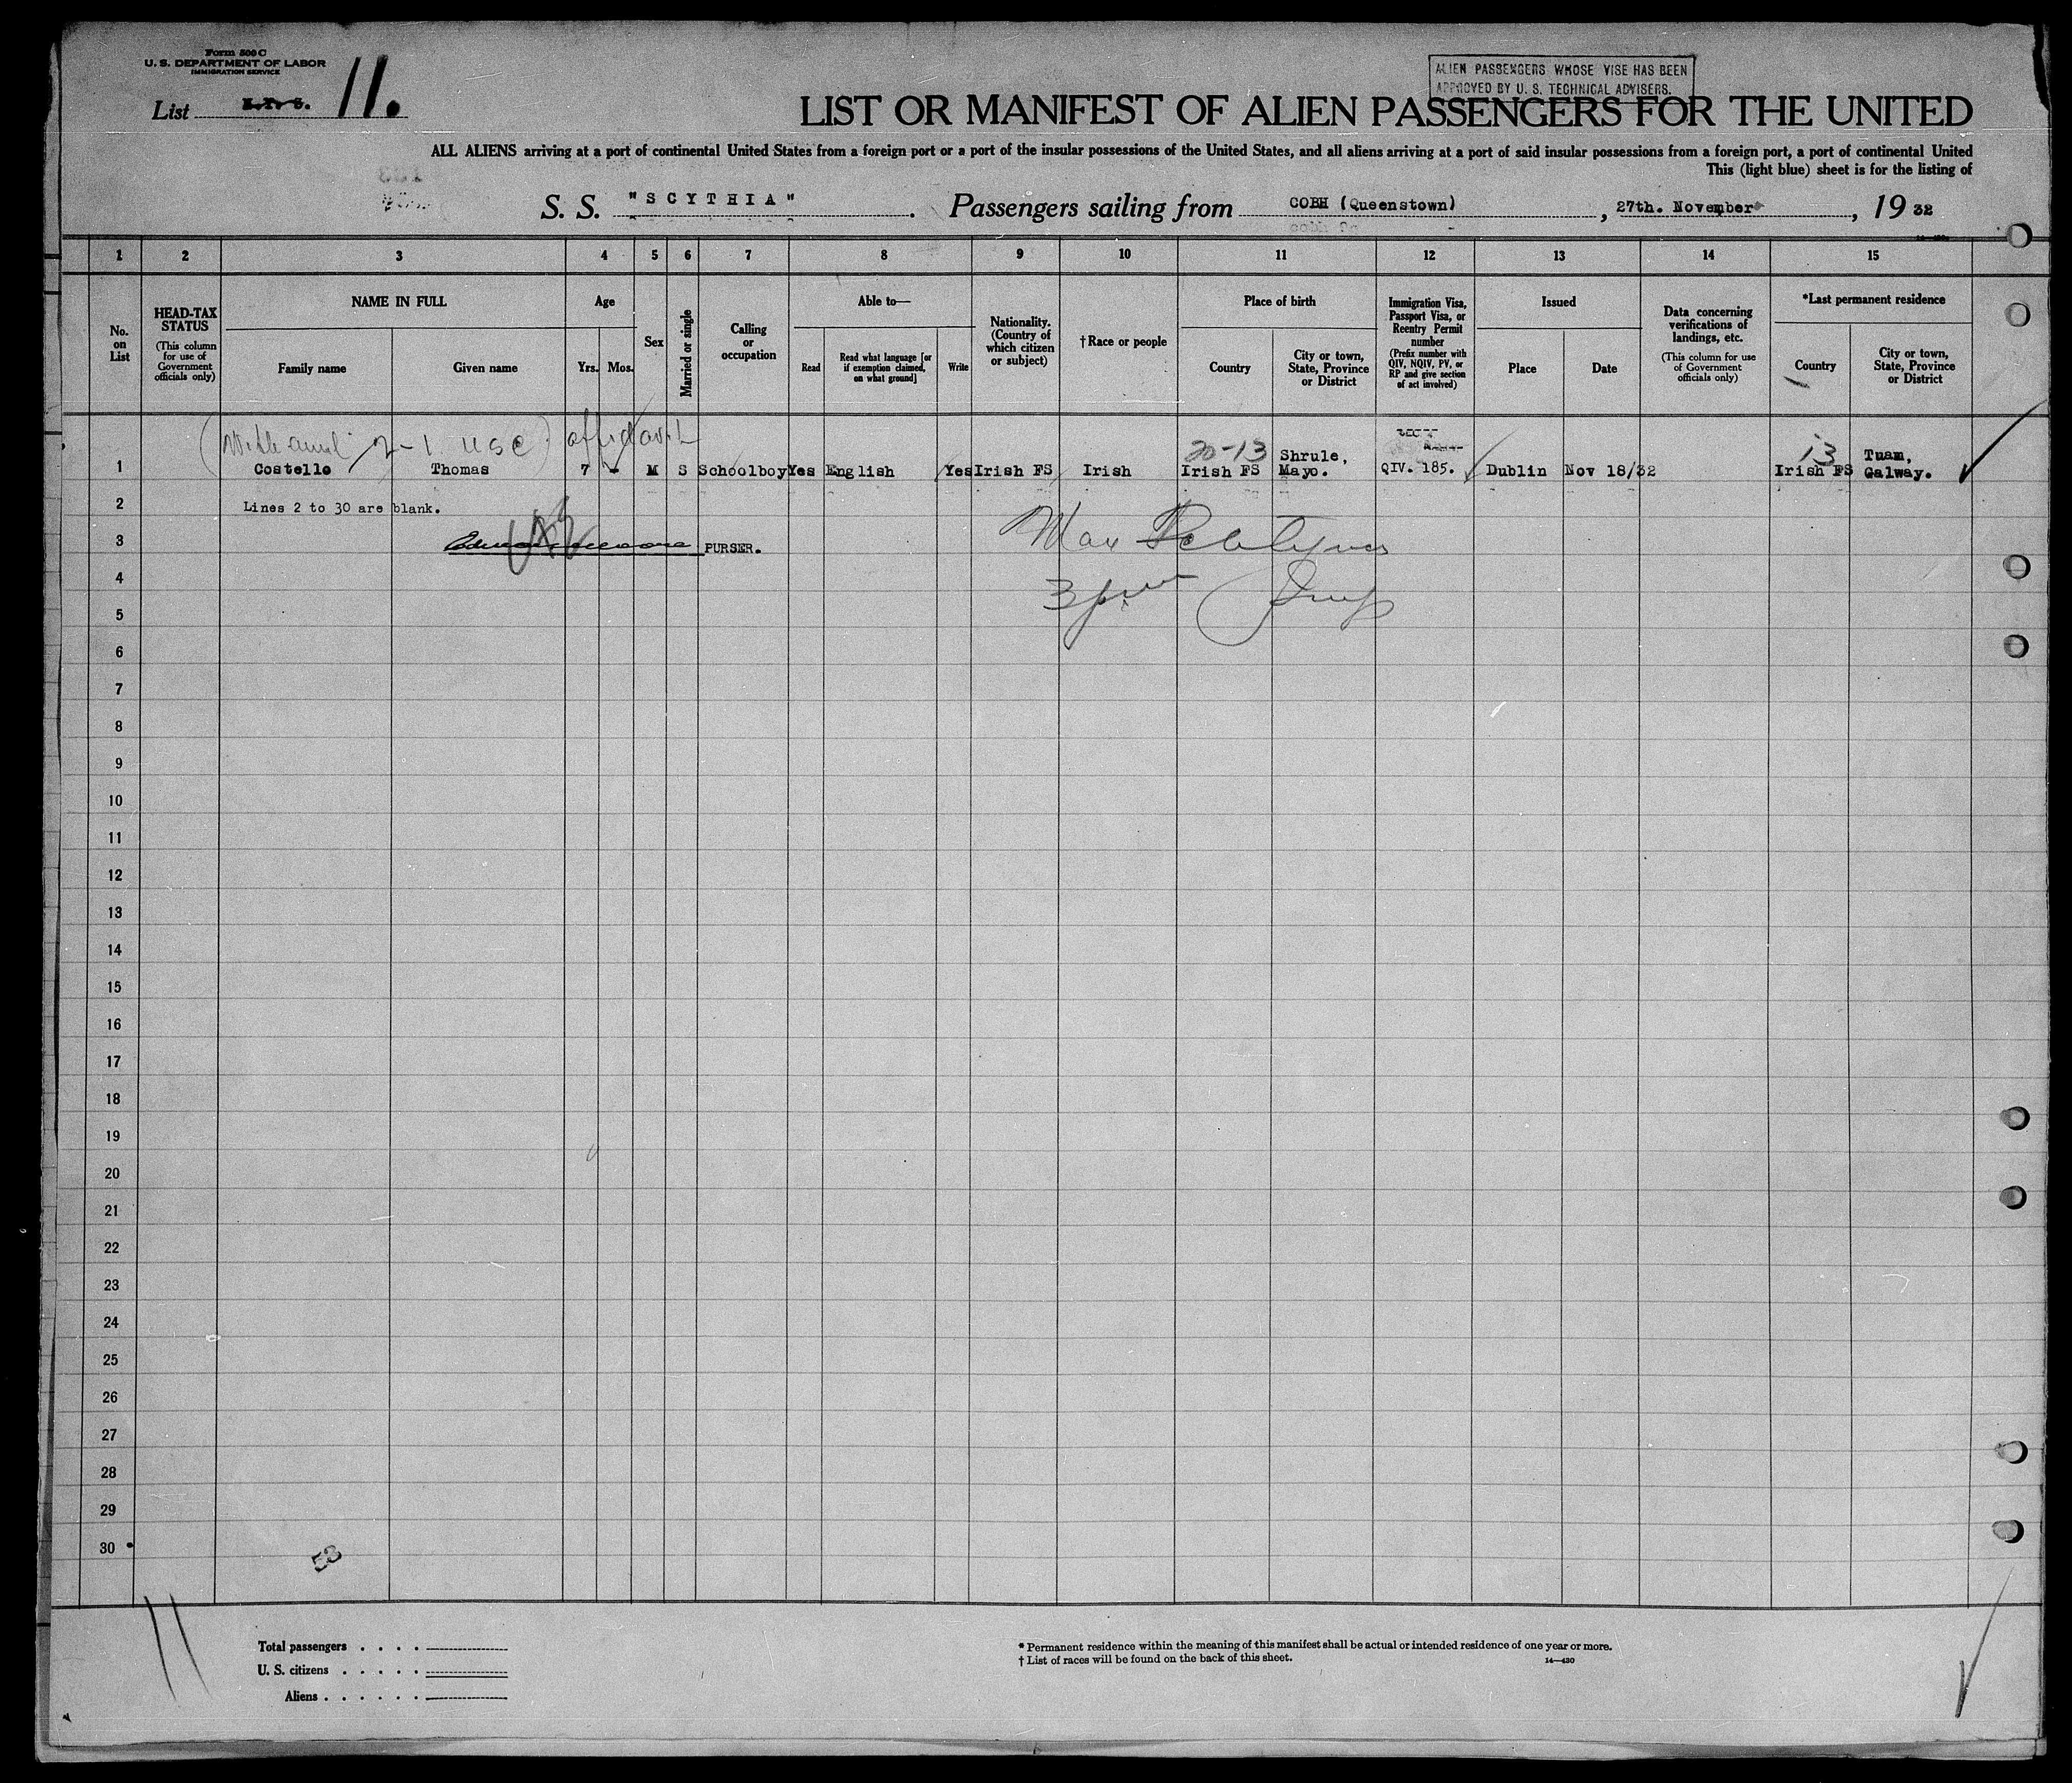 Form 500 C
U. S. DEPARTMENT OF LABOR
IMMIGRATION SERVICE
List 11.
ALIEN PASSENGERS WHOSE VISE HAS BEEN
APPROVED BY U. S. TECHNICAL ADVISERS.
LIST OR MANIFEST OF ALIEN PASSENGERS FOR THE UNITED
ALL ALIENS arriving at a port of continental United States from a foreign port or a port of the insular possessions of the United States, and all aliens arriving at a port of said insular possessions from a foreign port, a port of continental United
This (light blue) sheet is for the listing of
S. S. "SCYTHIA". Passengers sailing from COBH (Queenstown), 27th. November, 19 32
1 2 3 4 5 6 7 8 9 10 11 12 13 14 15
No. on List
HEAD-TAX STATUS
(This column for use of Government officials only)
NAME IN FULL
Family name
Given name
Age
Yrs. Mos.
Sex
Married or single
Calling or occupation
Able to—
Read
Read what language [or if exemption claimed, on what ground]
Write
Nationality. (Country of which citizen or subject)
†Race or people
Place of birth
Country
City or town, State, Province or District
Immigration Visa, Passport Visa, or Reentry Permit number
(Prefix number with QIV, NQIV, PV, or RP and give section of act involved)
Issued
Place
Date
Data concerning verifications of landings, etc.
(This column for use of Government officials only)
*Last permanent residence
Country
City or town, State, Province or District
2-1 USC) affidavit
20-13
13
1 Costello Thomas 7 - M S Schoolboy Yes English Yes Irish FS Irish Irish FS Shrule, Mayo. QIV. 185. Dublin Nov 18/32 Irish FS Tuam, Galway.
2 Lines 2 to 30 are blank.
3 PURSER.
4 3 pm
5
6
7
8
9
10
11
12
13
14
15
16
17
18
19
20
21
22
23
24
25
26
27
28
29
30
53
Total passengers . . . .
U. S. citizens . . . . .
Aliens . . . . . .
* Permanent residence within the meaning of this manifest shall be actual or intended residence of one year or more.
† List of races will be found on the back of this sheet.
14—430